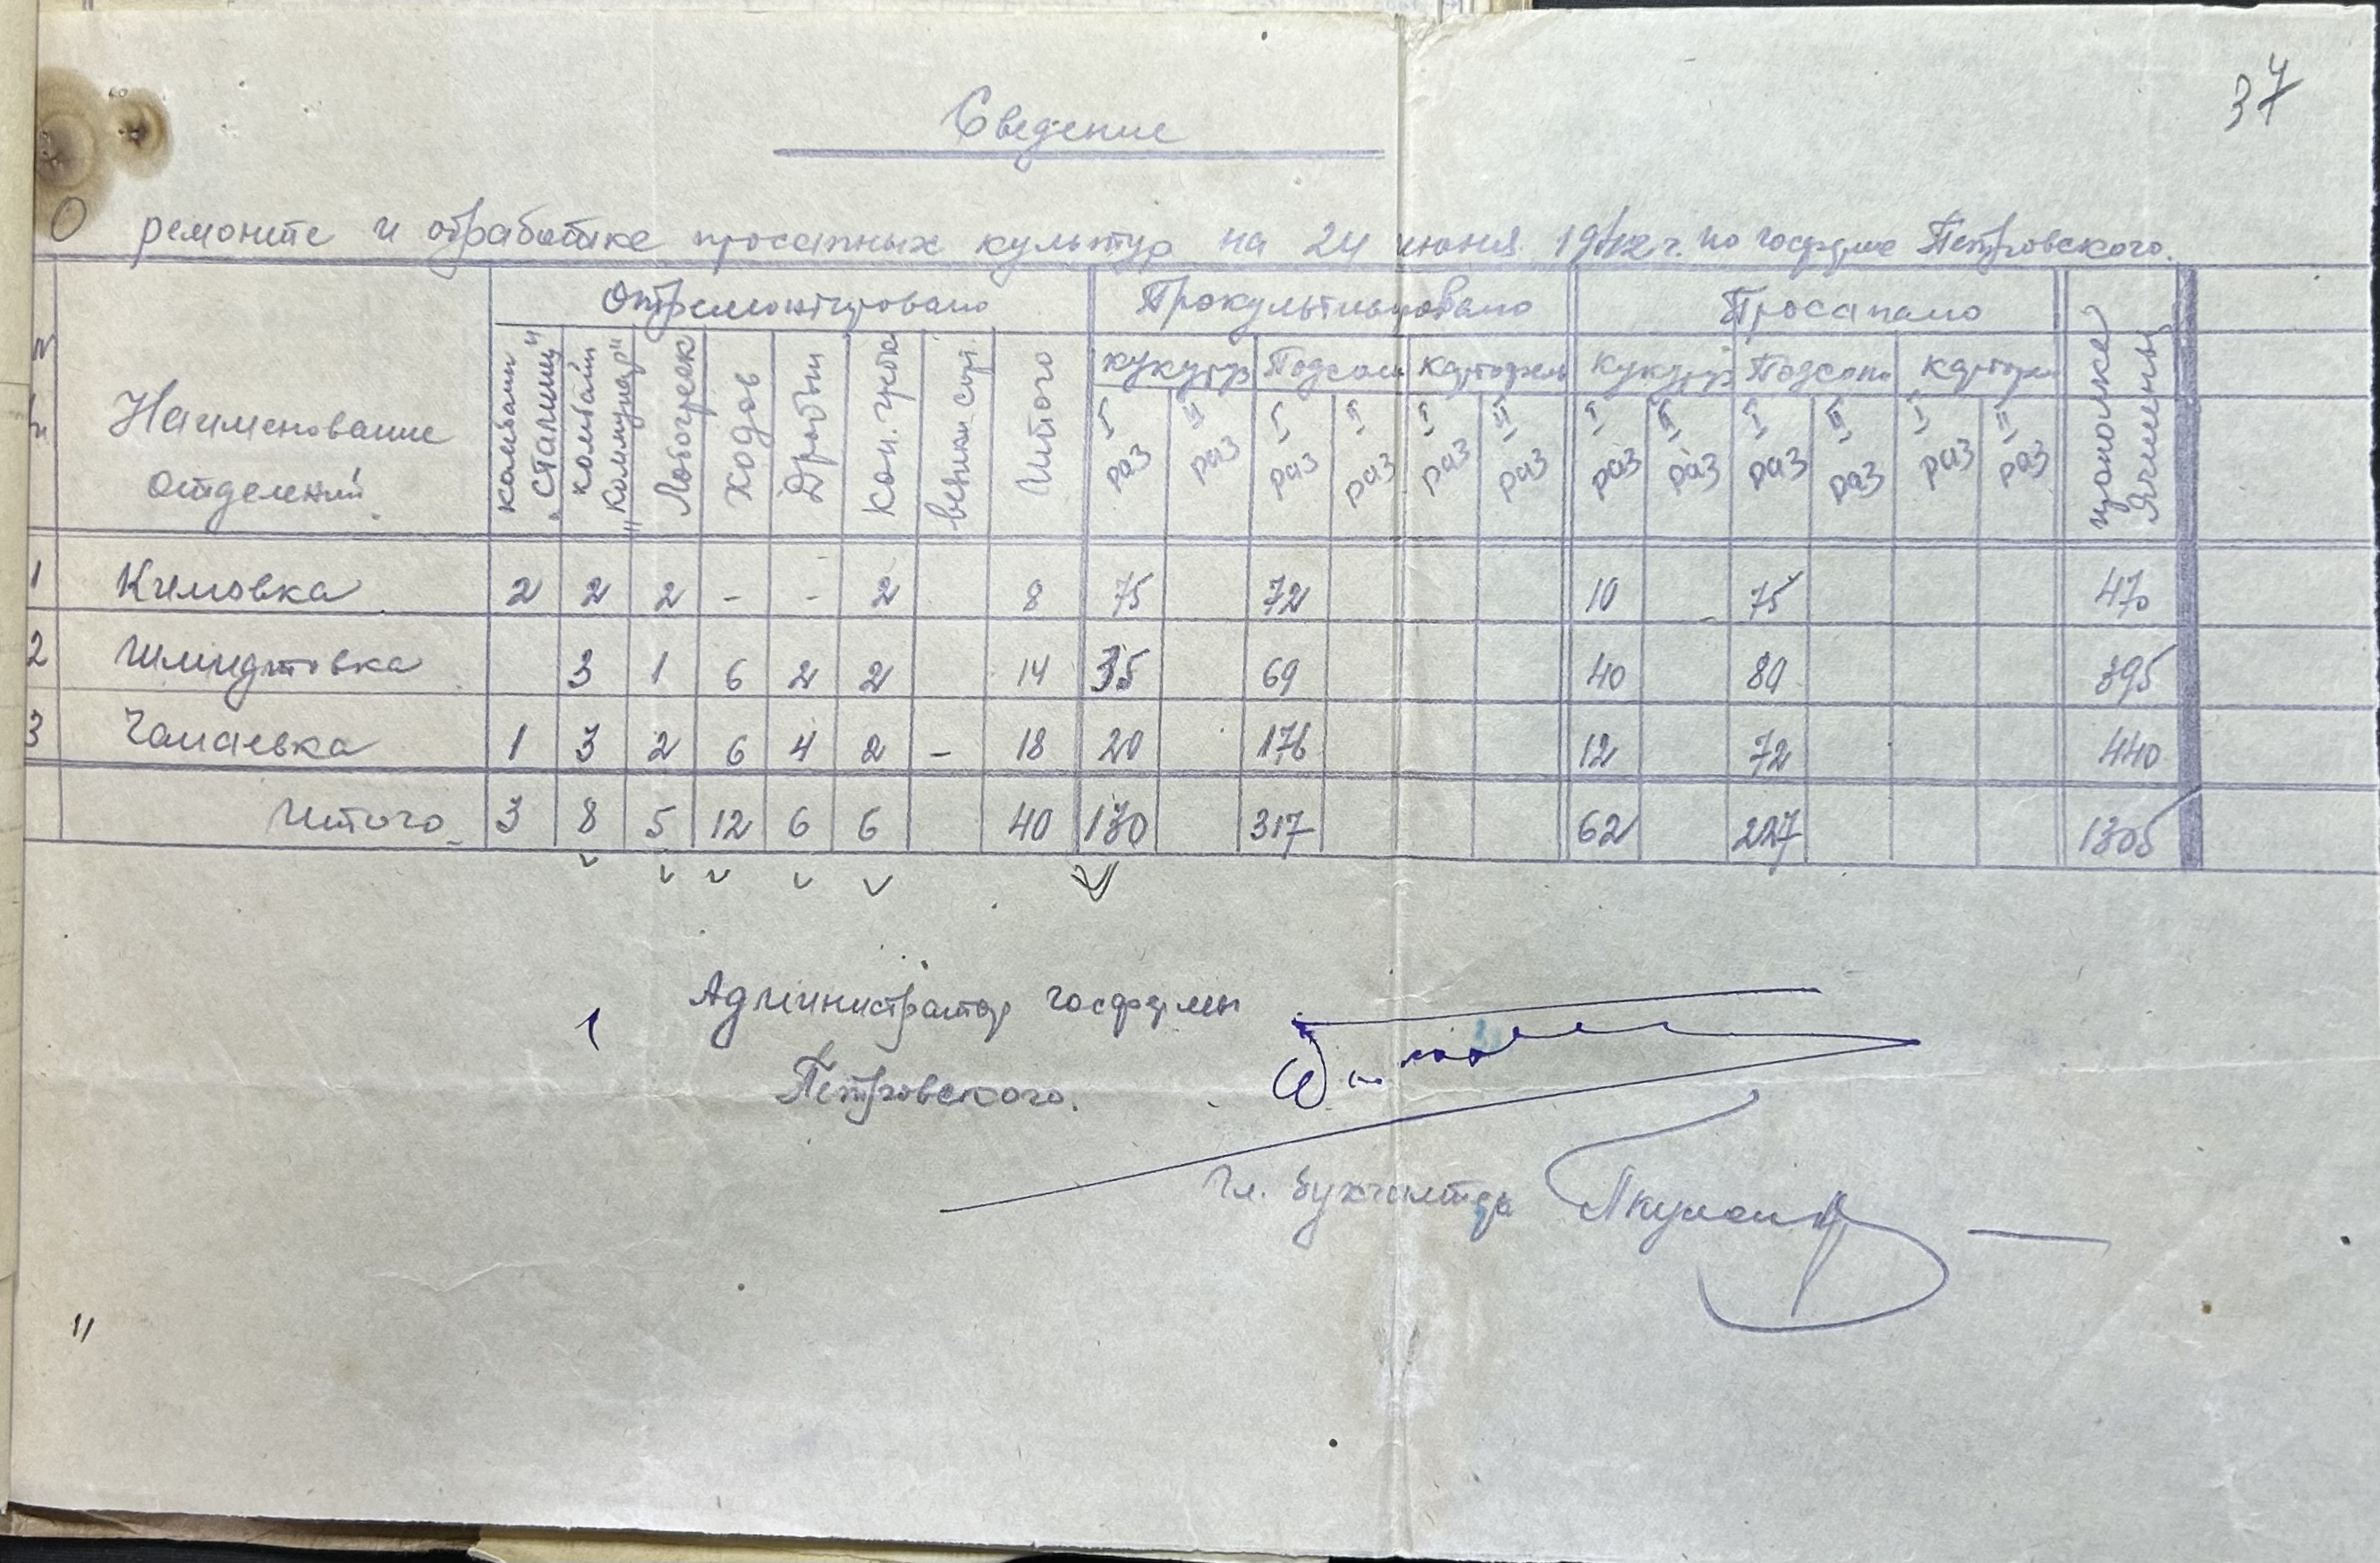 37
Сведение
О ремонте и обработке просапных культур на 24 июня 1942 г. по госферме Петровского.
Отремонтировано Прокультивировано Просапано
кукуруз Подсолн Картофель кукуруз Подсолн Картоф
Наименование отделений комбайн "Сталинец" комбайн "Коммунар" Лобогреек Ходов Дробын Кон. граб. Итого I раз II раз I раз II раз I раз II раз I раз II раз I раз II раз I раз II раз прополке Ячмень
1 Кимовка 2 2 2 - - 2 8 75 72 10 75 470
2 Шмидтовка 3 1 6 2 2 14 35 69 40 80 395
3 Чапаевка 1 3 2 6 4 2 - 18 20 176 12 72 440
Итого 3 8 5 12 6 6 40 130 317 62 227 1305
Администратор госфермы
Петровского.
Гл. бухгалтер